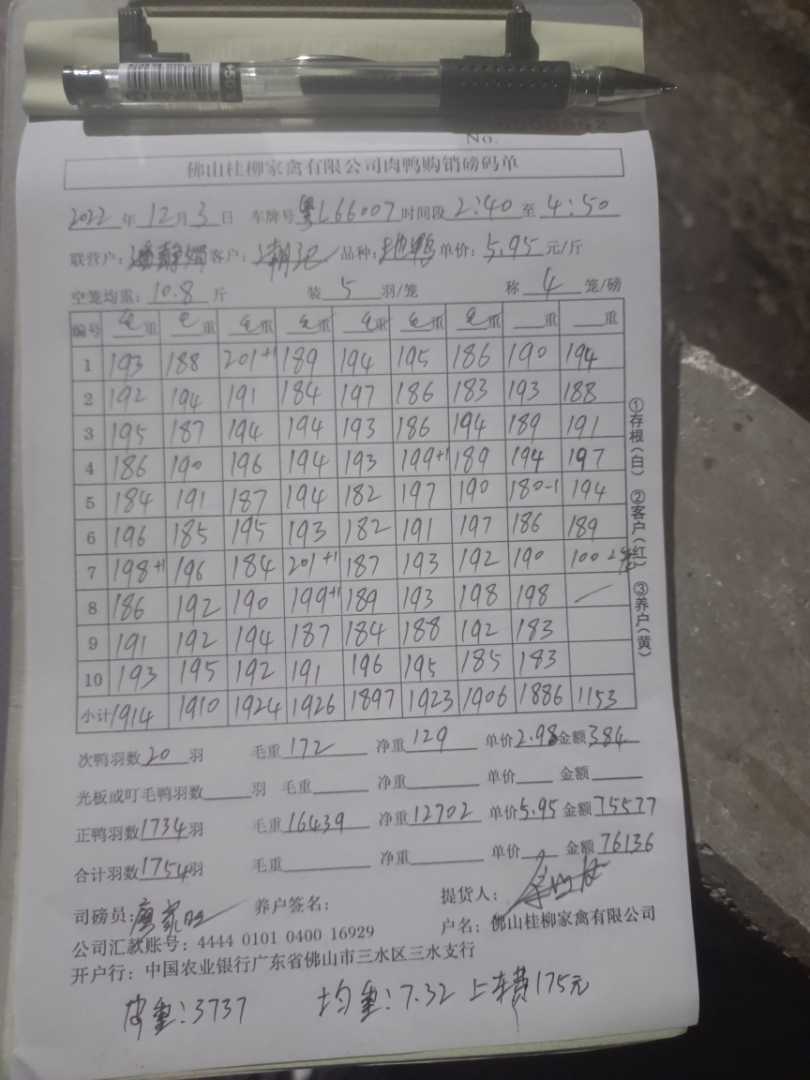 No.
佛山桂柳家禽有限公司肉鸭购销磅码单
2022年12月3日 车牌号粤L66007时间段2:40至4:50
联营户: 客户: 品种: 单价:5.95元/斤
空笼均重:10.8斤 装5羽/笼 称4笼/磅
编号 毛重 毛重 毛重 毛重 毛重 毛重 毛重 重 重
1 193 188 201+1 189 194 195 186 190 194
2 192 194 191 184 197 186 183 193 188
3 195 187 194 194 193 186 194 189 191
4 186 190 196 194 193 199+1 189 194 197
5 184 191 187 194 182 197 190 180-1 194
6 196 185 195 193 182 191 197 186 189
7 198+1 196 184 201+1 187 193 192 190 100 2笼
8 186 192 190 199+1 189 193 198 198 —
9 191 192 194 187 184 188 192 183
10 193 195 192 191 196 195 185 183
小计 1914 1910 1924 1926 1897 1923 1906 1886 1153
次鸭羽数20羽 毛重172 净重129 单价2.98金额384
光板或叮毛鸭羽数 羽 毛重 净重 单价 金额
正鸭羽数1734羽 毛重16439 净重12702 单价5.95金额75577
合计羽数1754羽 毛重 净重 单价 金额76136
司磅员: 养户签名: 提货人:
公司汇款账号:4444 0101 0400 16929 户名:佛山桂柳家禽有限公司
开户行:中国农业银行广东省佛山市三水区三水支行
皮重:3737 均重:7.32 上车费175元
①存根(白) ②客户(红) ③养户(黄)